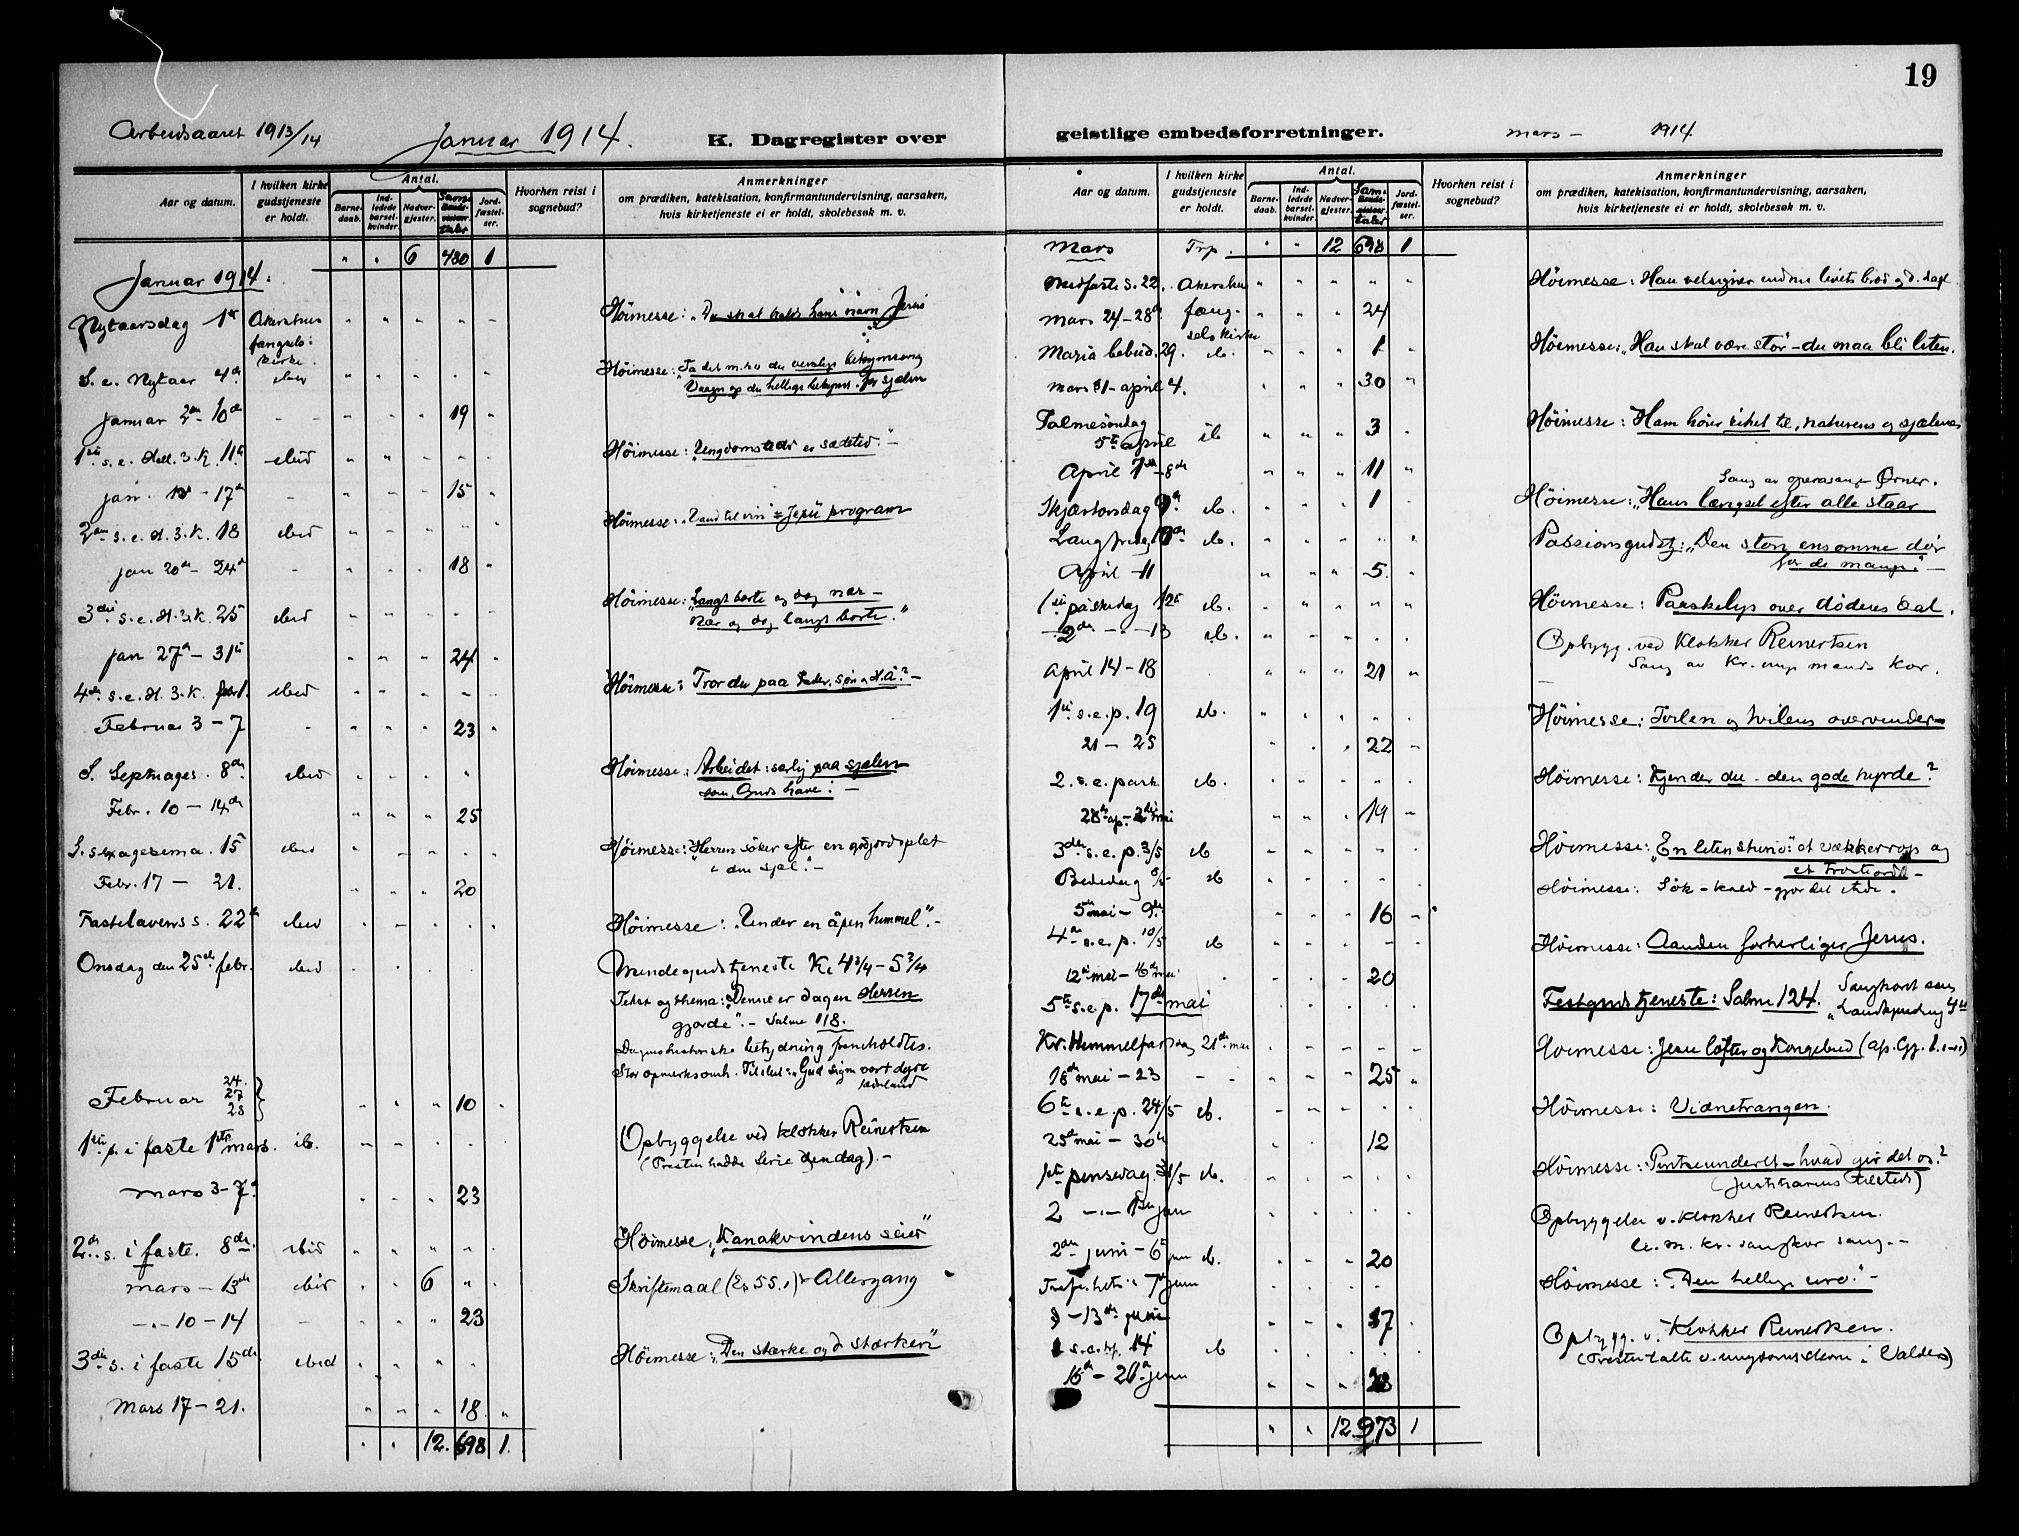 19
Arbeidsaaret 1913/14
Januar 1914.
K. Dagregister over
Aar og datum.
I hvilken kirke gudstjeneste er holdt.
Antal.
Barne-daab.
Ind-ledede barsel-kvinder.
Nadver-gjester.
Sam-taler
Jord-fæstel-ser.
Hvorhen reist i sognebud?
Anmerkninger
om prædiken, katekisation, konfirmantundervisning, aarsaken,
hvis kirketjeneste ei er holdt, skolebesøk m. v.
" " 6 480 1
Januar 1914:
Nytaarsdag 1ste Akershus fængsels-kirke. " " " " " Høimesse: "Du skal kalde hans navn Jesus
S. e. Nytaar 4de ibid " " " " " Høimesse:
Januar 2den - 10de - - " " " 19 "
1ste s. e. Hell. 3 K. 11te ibid " " " " " Høimesse: "Ungdomstids er sædetid." -
jan. 13 - 17de - " " " 15 "
2den s. e. H. 3. K. 18 ibid " " " " " Høimesse: "Vand til vin" = Jesu program
jan 20de - 24de - " " " 18 "
3die s. e. H. 3. K. 25 ibid " " " " " Høimesse: "Langt borte og dog nær -
Nær og dog langt borte."
jan 27de - 31te " " " 24 "
4de s. e. H. 3. K. febr 1. ibid " " " " " Høimesse: Tror du paa Fader, søn o H. Å? -
Februar 3 - 7 " " " " 23 "
S. Septuages. 8de ibid " " " " Høimesse: Arbeidet: særlig paa sjælen
som "Guds have". -
Febr. 10 - 14de " " " 25
S. sexagesima. 15 ibid " - " " Høimesse: "Herren søker efter en godjordsplet
i din sjæl". -
Febr. 17 - 21. " " " 20
Fastelavens s. 22de ibid " " " " Høimesse: "Under en åpen himmel". -
Onsdag den 25de febr. ibid " " " Mindegudstjeneste Kl 4 3/4 - 5 3/4
Tekst og thema: "Denne er dagen Herren
gjorde". - Salme 118.
Dagens historiske betydning fremholdtes.
Stor opmerksomh. Tilslut: "Gud sign vort dyre
fædreland
Februar 24. 27 28 } " " " 10 "
1ste s. i faste 1ste mars. ib. " - " " Opbyggelse ved klokker Reinertsen
(Presten hadde ferie den dag). -
mars 3 - 7. " " " 23
2den s. i faste. 8de ibid " " " " Høimesse: "Kanakvindens seier"
mars - 13de ibid " " 6 " " Skriftemaal (Es 55. 1) + Altergang
-"- 10 - 14 - " " " 23
3die s. i faste 15de ibid " " " " Høimesse: "Den stærke og d stærkere"
Mars 17 - 21. " " " 18 "
" " 12. 698 1.
geistlige embedsforretninger.
mars - 1914
Aar og datum.
I hvilken kirke gudstjeneste er holdt.
Antal.
Barne-daab.
Ind-ledede barsel-kvinder.
Nadver-gjester.
Sam-taler
Jord-fæstel-ser.
Hvorhen reist i sognebud?
Anmerkninger
om prædiken, katekisation, konfirmantundervisning, aarsaken,
hvis kirketjeneste ei er holdt, skolebesøk m. v.
Mars Trp. " " 12 698 1
Midfaste s. 22. Akershus " " " " " Høimesse: Han velsigner endnu livets brød
mars 24 - 28de fæng-selskirke " " " 24
Maria bebud. 29. ib. " " " 1 " Høimesse: "Han skal være stor" - du maa bli liten.
mars 31 - april 4. " " " 30 "
Palmesøndag 5te april ib " " " 3 " Høimesse: Ham hører riket til, naturens og sjælenes
April 7de - 8de " " " 11 "
Sang av operasanger Ørner.
Skjærtorsdag 9de ib. " " " 1 " Høimesse: "Hans længsel efter alle staar
Langfredag 10de ib. " " " " " Passionsgudstj: "Den store ensomme dør
for de mange." -
April - 11 " " " 5 "
1ste paaskedag 12te ib. " " " " " Høimesse: Paaskelys over dødens dal.
-2den -"- 13 ib. " " " " " Opbygg. ved Klokker Reinertsen
Sang av Kr. unge mænds kor.
April 14 - 18 " " " 21 "
1ste s. e. p. 19 ib. " " " " " Høimesse: Tvilen og tvilens overvinder -
21 - 25 " " " 22 -
2. s. e. paask ib. " " " " " Høimesse: Kjender du - den gode hyrde?
28de ap - 2den mai " " " 19 -
3die s. e. p. 3/5 ib " " - - - Høimesse: "En liten stund": et vækkerrop og
et trøsteord -
Bededag 8/5 ib " " " " Høimesse: Søk - bed - gjør det .
5te mai - 9de " " " 16 - "
4de s. e. p. 10/5 ib " " " - " Høimesse: Aanden forherliger Jesus.
12te mai - 16de mai " " " 20 "
5te s. e. p. 17de mai " " - - - Festgudstjeneste: Salme 124. Sangkort sang
"Landkjending
Kr. Himmelfartsdag 21de mai " " - - - Høimesse: Jesu løfter og Kongebud (Ap. Gj. 1. )
18de mai - 23 - - " " " 25 "
6te s. e. p. 24/5 ib. " " " " " Høimesse: Vidnetrangen.
25de mai - 30te " " 12
1ste pinsedag 31/5 ib. " " " " Høimesse: "Pintseunderet - hvad gir det os?
(Justitiarius tilsted)
2 -"- 1ste juni " " " " Opbyggelse v. klokker Reinertsen.
U. m. kr. sangkor sang. -
2den juni - 6te juni ib. " " " 20
Trefoldighets s 7de juni " " " " Høimesse: "Den hellige uro". -
9 - 13de juni " " " 37 "
1 s. e. tr. 14 ib " " " " Opbygg. v. Klokker Reinertsen.
(Presten talte v. ungdomsstevn i Valdres)
16de - 20de juni " " " 28
" " 12. 973 1